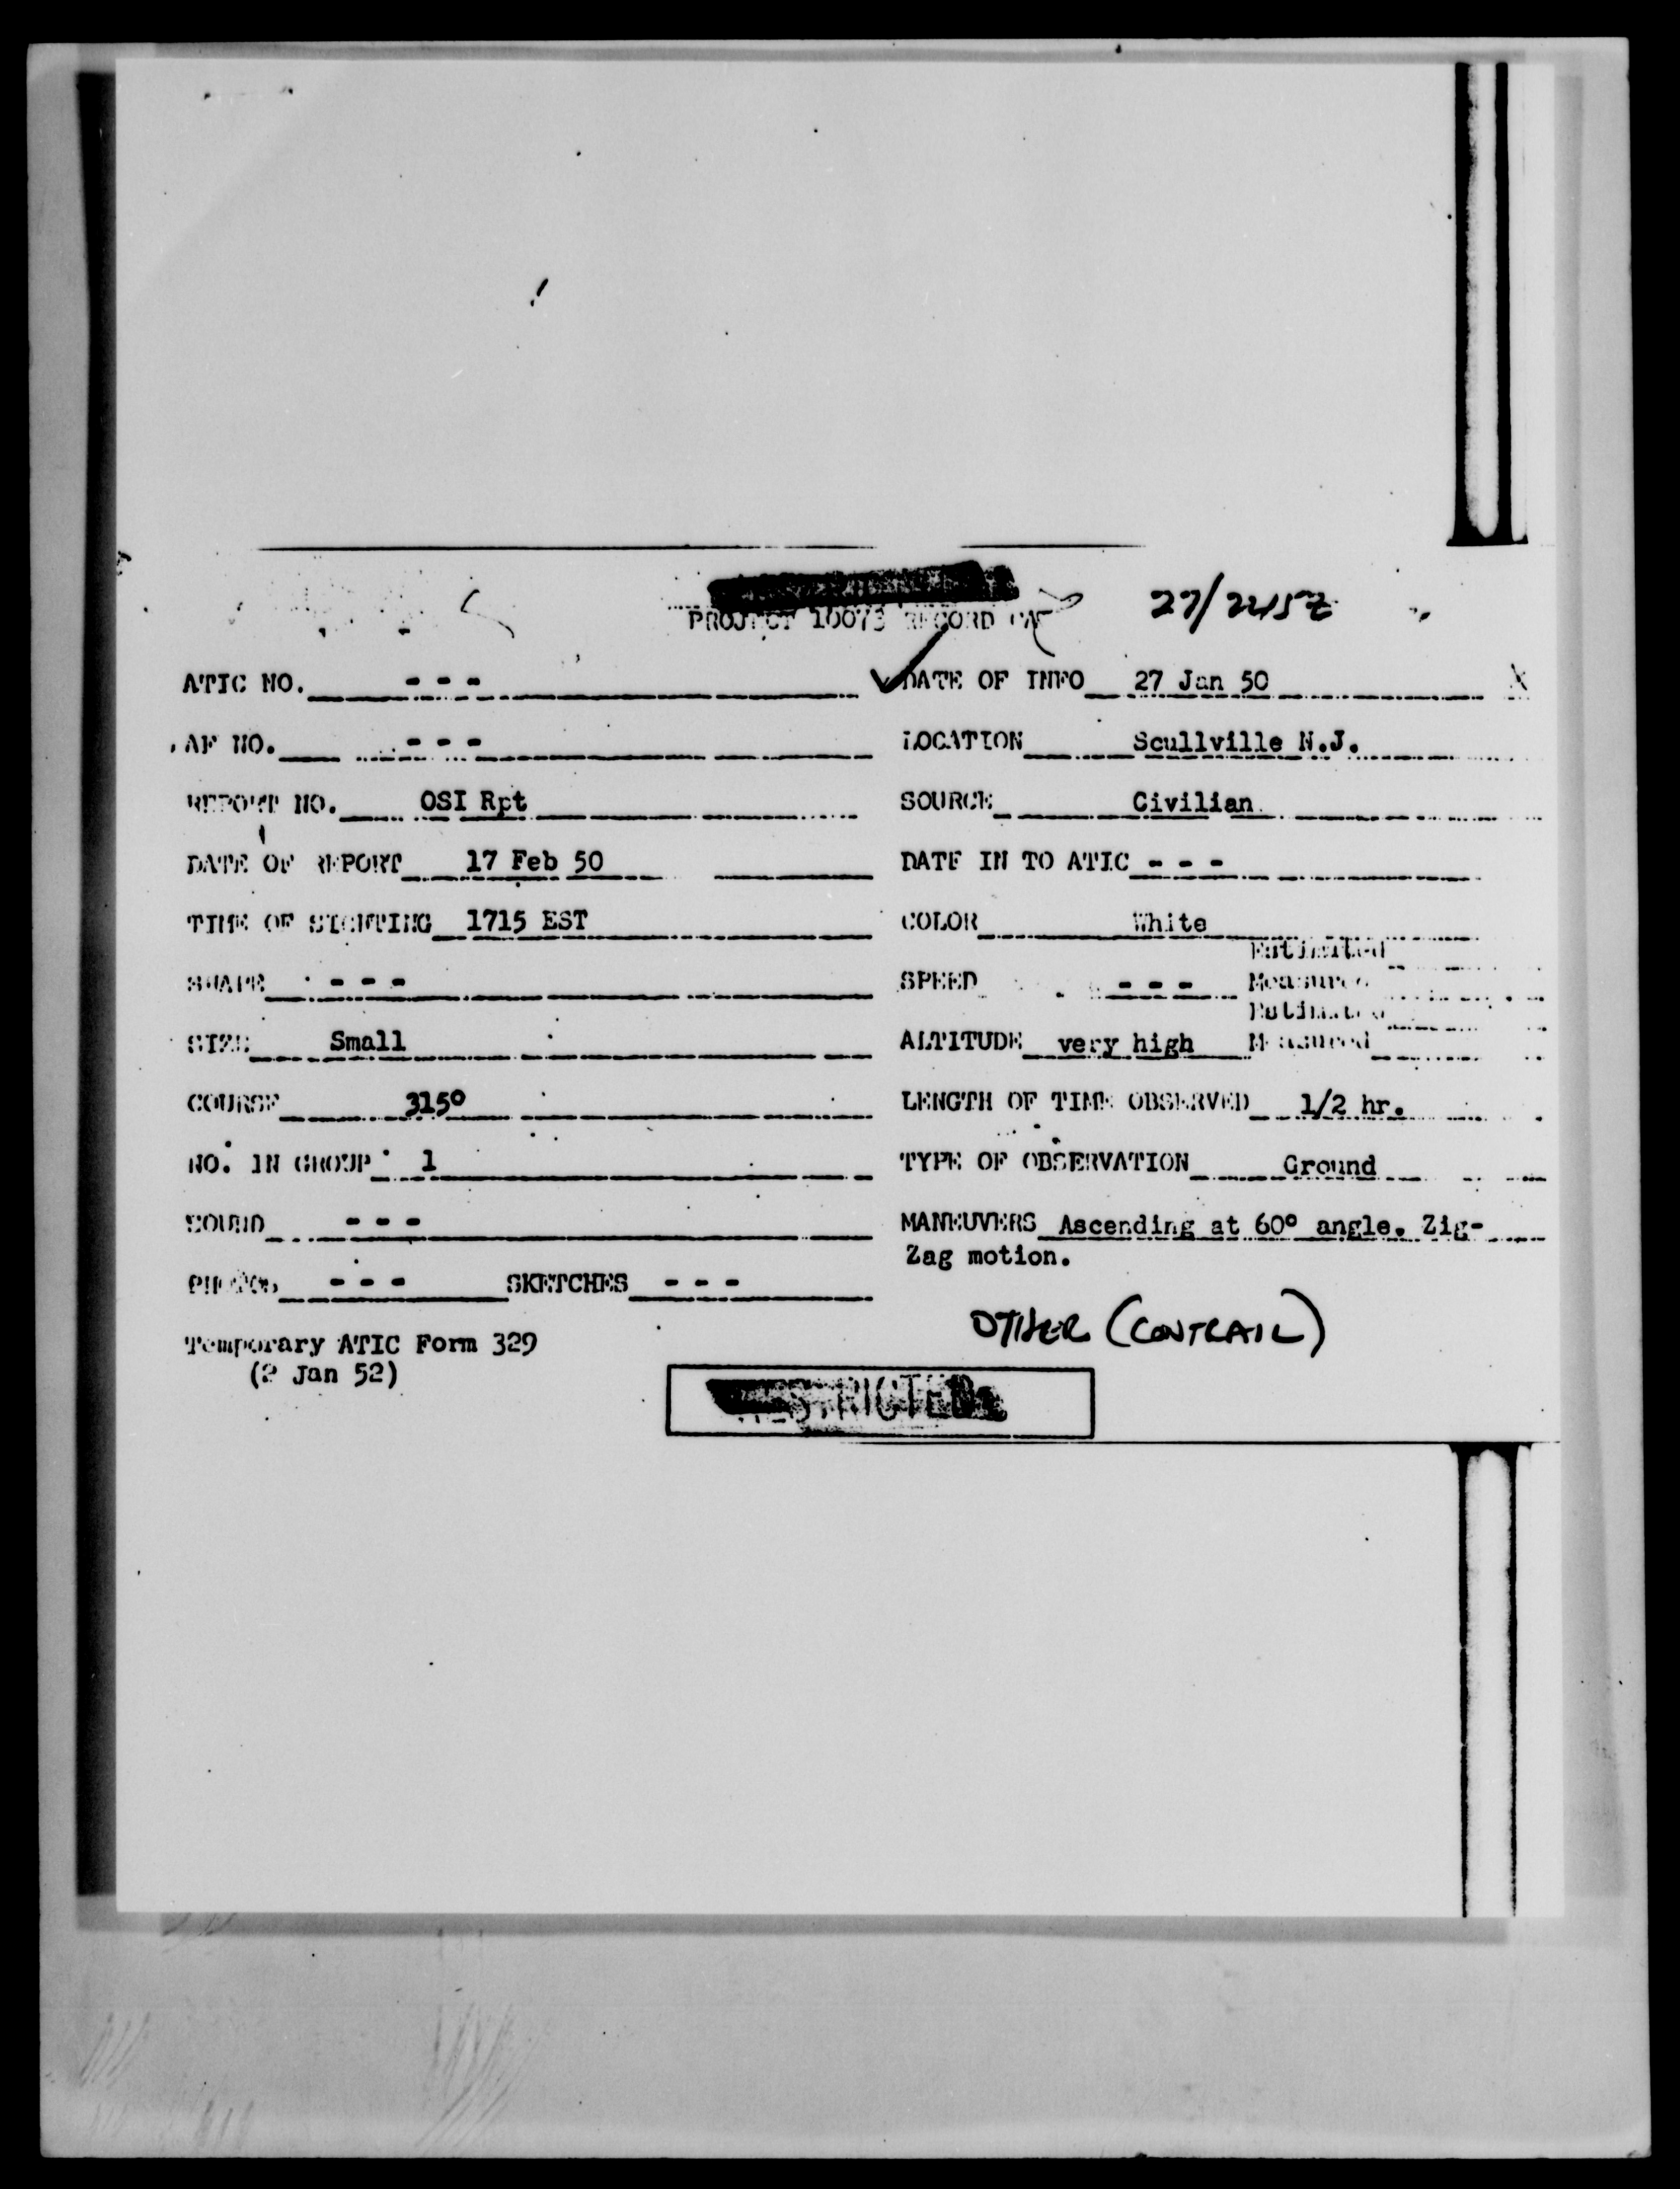 PROJECT 10073 RECORD
27/2215Z
ATIC NO. - - -
DATE OF INFO 27 Jan 50
AF NO. - - -
LOCATION Scullville N.J.
REPORT NO. OSI Rpt
SOURCE Civilian
DATE OF REPORT 17 Feb 50
DATE IN TO ATIC - - -
TIME OF SIGHTING 1715 EST
COLOR White
SHAPE - - -
Estimated
SPEED - - - Measured
Estimated
SIZE Small
ALTITUDE very high Measured
COURSE 315°
LENGTH OF TIME OBSERVED 1/2 hr.
NO. IN GROUP 1
TYPE OF OBSERVATION Ground
SOUND - - -
MANEUVERS Ascending at 60° angle. Zig-
Zag motion.
PHOTOS - - - SKETCHES - - -
OTHER (CONTRAIL)
Temporary ATIC Form 329
(2 Jan 52)
RESTRICTED